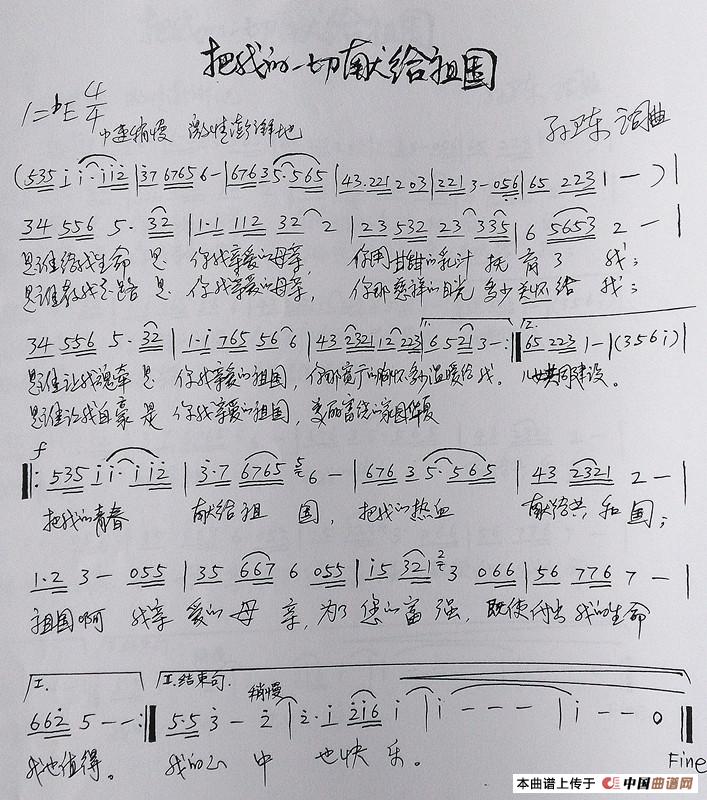 把我的一切献给祖国
1=♭E 4/4
中速稍慢 激情澎湃地
孙卫东 词曲
(535 i i·i i2|37 6765 6-|6763 5·565|43·221 2 03|221 3-056|65 223 1-)|
34 556 5· 32|1·1 112 32 2|23 532 23 335|6 5653 2-|
是谁给我生命 是 你我亲爱的母亲, 你用甘甜的乳汁 抚育了 我;
是谁教我走路 是 你我亲爱的母亲, 你那慈祥的目光 多少关怀给 我;
34 556 5· 32|1·i 765 56 6|43 2321 12 223|6 521 3-:‖2. 65 223 1-|(356i)|
是谁让我魂牵 是 你我亲爱的祖国, 你那宽广的胸怀多少温暖给我。 儿女共同建设。
是谁让我自豪 是 你我亲爱的祖国, 美丽富饶的家园华夏
f
‖:535 i i·i i2|3·7 6765 5 6-|676 3 5·565|43 2321 2-|
把我的青春 献给祖国, 把我的热血 献给共和国;
1·2 3-055|35 667 6 055|i5 321 2 3 066|56 776 7-|
祖国啊 我亲爱的母亲, 为了您的富强, 既使付出我的生命
I. II.结束句. 稍慢
662 5--:‖5·5 3-2|2·i 2i6 i|i---|i--0‖
我也值得。 我的心中也快乐。
Fine
本曲谱上传于 中国曲谱网